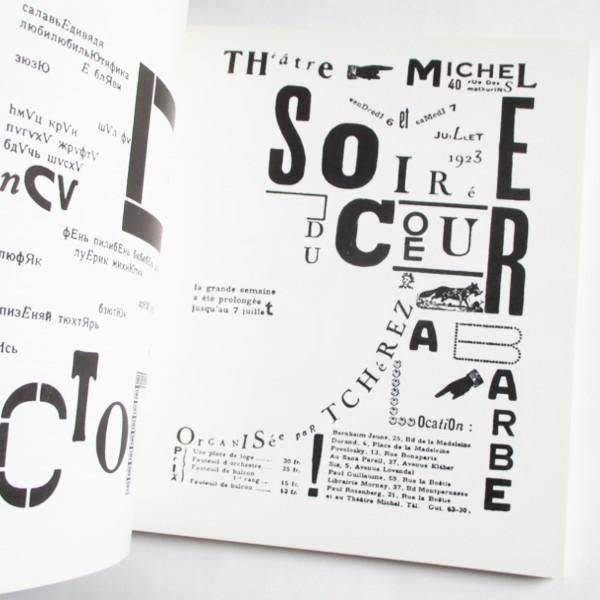 салавьЕдивяда
любилюбильЮтяфика
зюзЮ Е блЯви
hмVц крVн шVл фV
пVгVхV жрVфтV
бдVчь шVсхV
nCV
фЕнь пилибЕнь
луЕрик жихиЮтик
люфЯк
пизЕняй тюхтЯрь
СТО
THéâtre MICHEL
40 rUe Des
mathuriNS
venDredI 6 et saMedI 7
JUiLLET
1923
SoIRéE
DU CŒUR
A BARBE
la grande semaine
a été prolongée
jusqu'au 7 juillet
OrGANISée paR TCHéREZ
PrIX
Une place de loge 30 fr.
Fauteuil d'orchestre 25 fr.
Fauteuil de balcon
1er rang 15 fr.
Fauteuil de balcon 12 fr.
!
LOcatiOn :
Bernheim Jeune, 25, Bd de la Madeleine
Durand, 4, Place de la Madeleine
Povolozky, 13, Rue Bonaparte
Au Sans Pareil, 37, Avenue Kléber
Six, 5, Avenue Lowendal
Paul Guillaume, 59, Rue la Boëtie
Librairie Mornay, 37, Bd Montparnasse
Paul Rosenberg, 21, Rue la Boëtie
et au Théâtre Michel, Tél. Gut. 63-30.